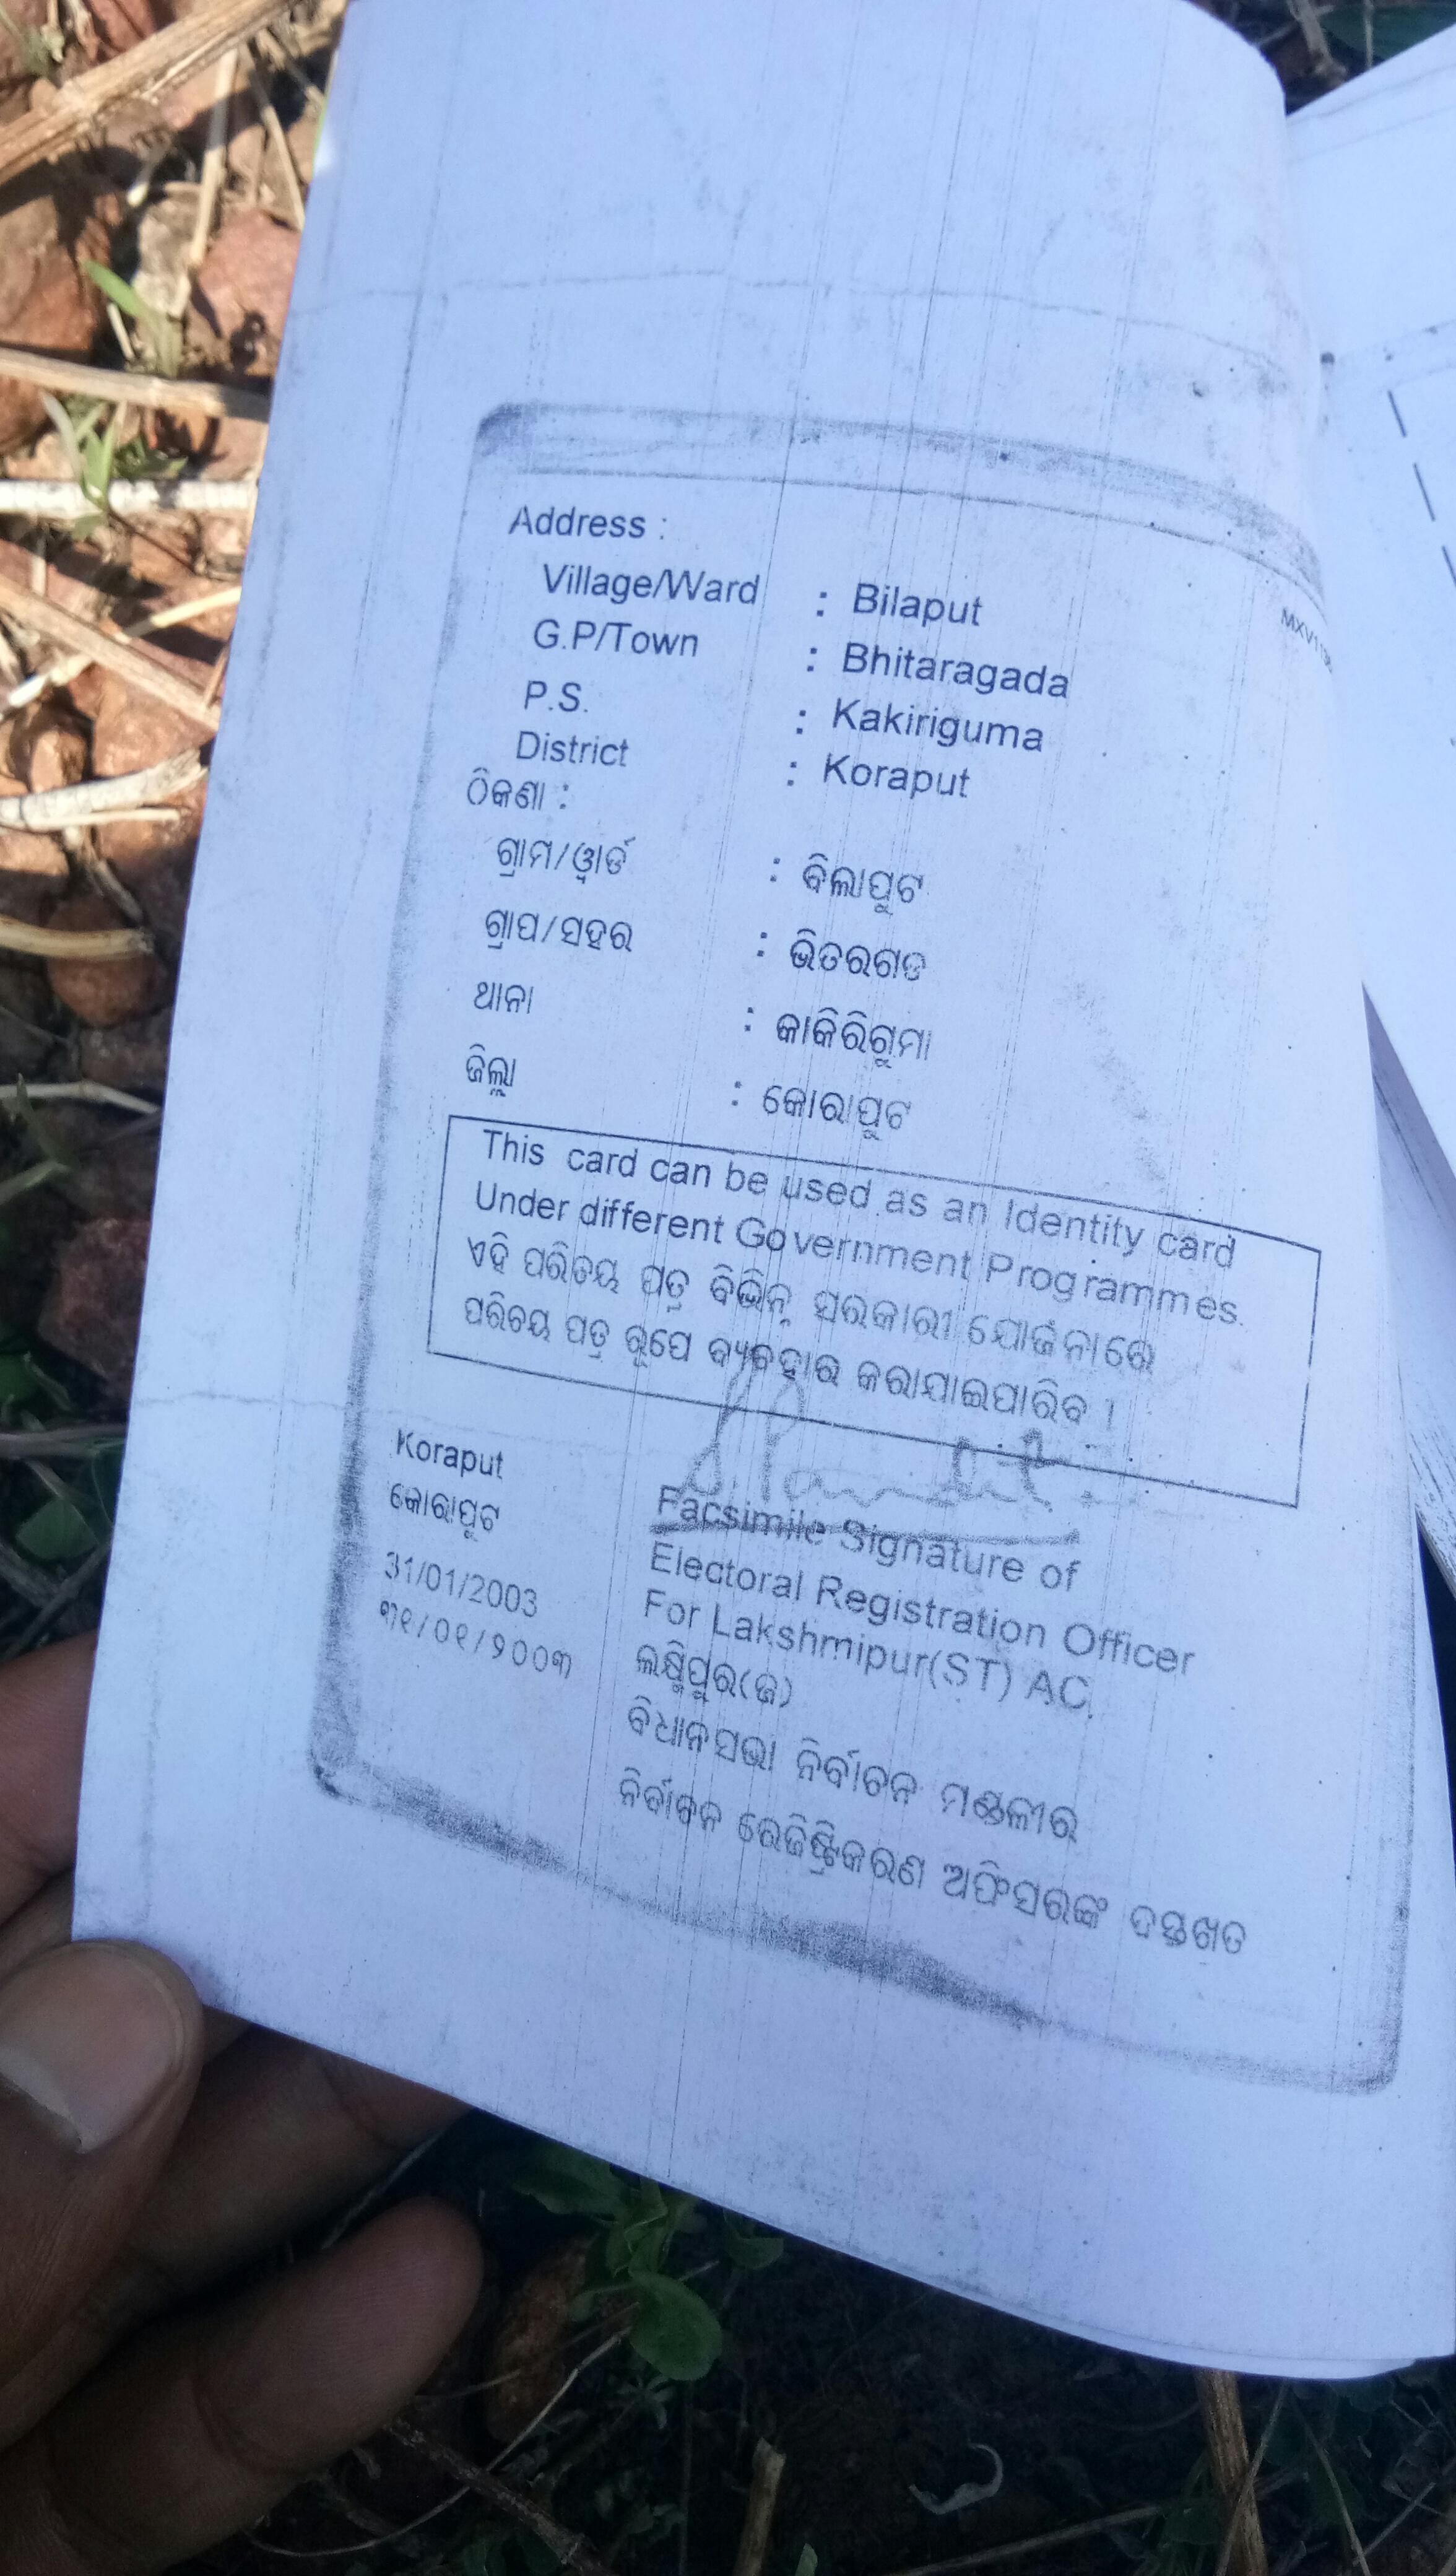 Address :
Village/Ward : Bilaput
G.P/Town : Bhitaragada
P.S. : Kakiriguma
District : Koraput
ଠିକଣା :
ଗ୍ରାମ/ୱାର୍ଡ : ବିଲାପୁଟ
ଗ୍ରାପ/ସହର : ଭିତରଗଡ
ଥାନା : କାକିରିଗୁମା
ଜିଲ୍ଲା : କୋରାପୁଟ
This card can be used as an Identity card
Under different Government Programmes.
ଏହି ପରିଚୟ ପତ୍ର ବିଭିନ୍ନ ସରକାରୀ ଯୋଜନାରେ
ପରିଚୟ ପତ୍ର ରୂପେ ବ୍ୟବହାର କରାଯାଇପାରିବ ।
Koraput
କୋରାପୁଟ
31/01/2003
୩୧/୦୧/୨୦୦୩
Facsimile Signature of
Electoral Registration Officer
For Lakshmipur(ST) AC.
ଲକ୍ଷ୍ମିପୁର(ଜ)
ବିଧାନସଭା ନିର୍ବାଚନ ମଣ୍ଡଳୀର
ନିର୍ବାଚନ ରେଜିଷ୍ଟ୍ରିକରଣ ଅଫିସରଙ୍କ ଦସ୍ତଖତ